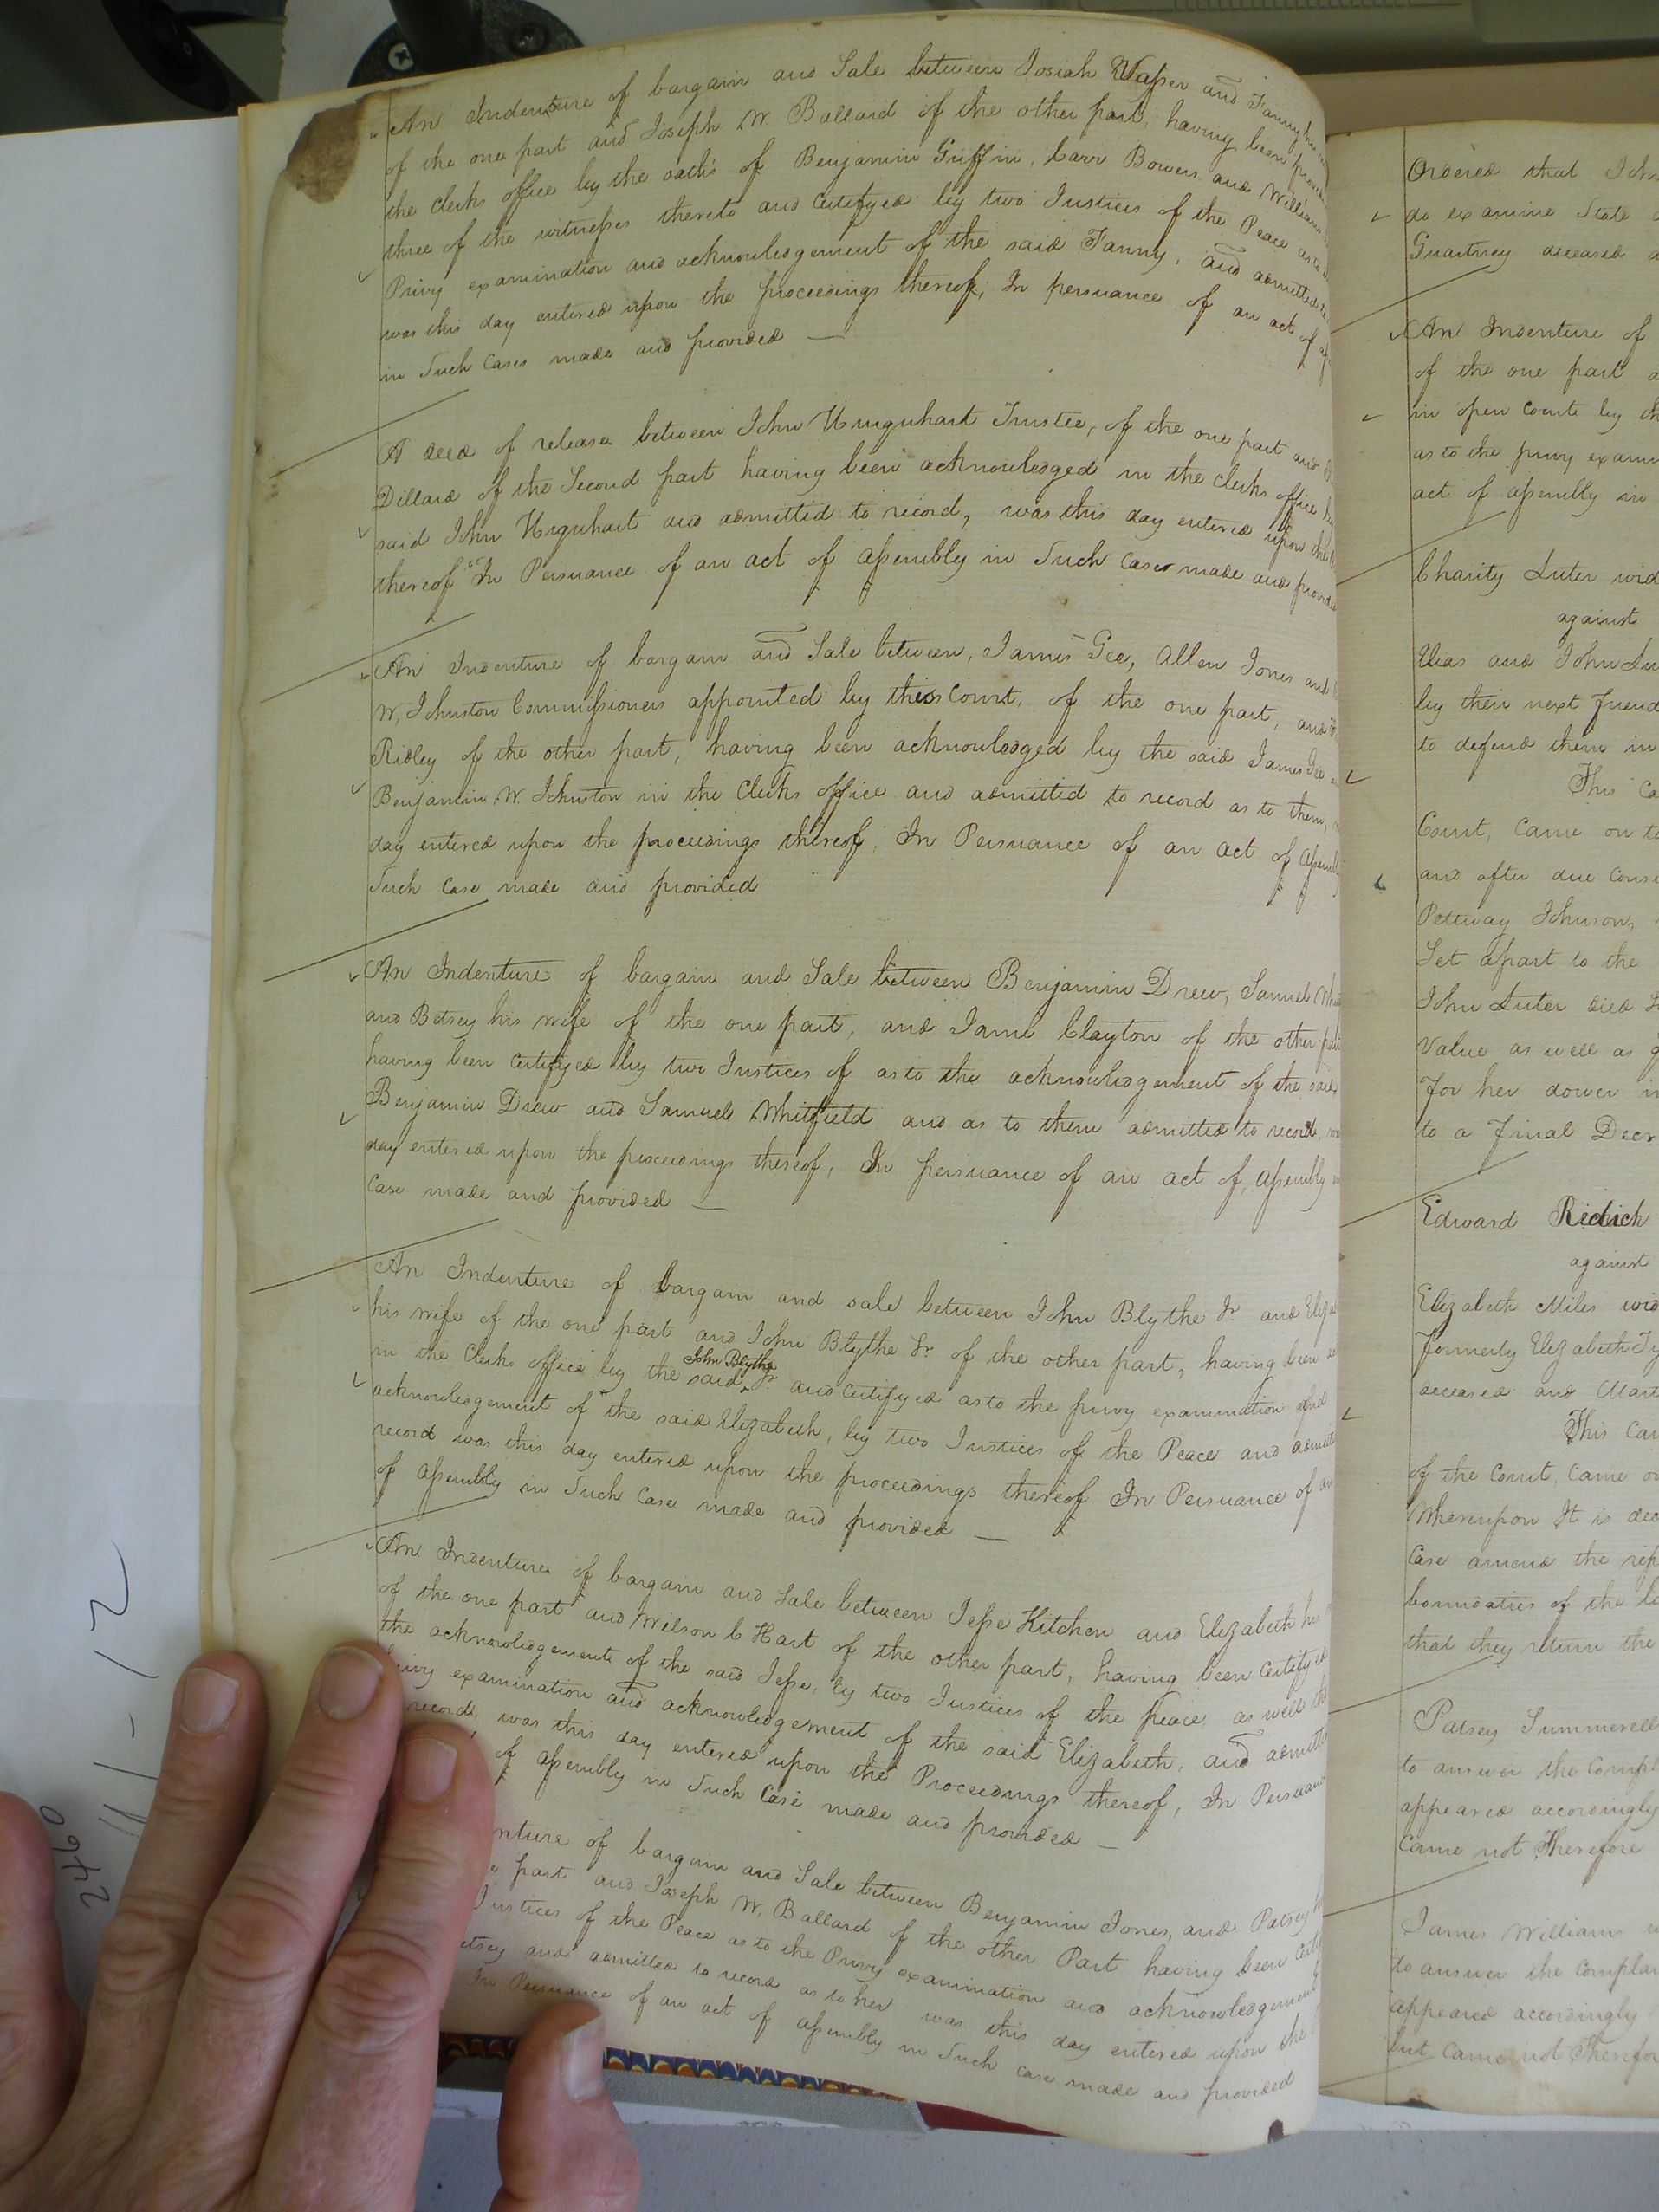 An Indenture of bargain and Sale between Josiah Vasser and Fanny his
of the one part and Joseph W. Ballard of the other part, having been proved
the clerks office by the oaths of Benjamin Griffin, Carr Bowers and William
three of the witnesses thereto and Certifyed by two Justices of the Peace as to
Privy examination and acknowledgement of the said Fanny, and admitted to
was this day entered upon the proceedings thereof, In persuance of an act of
in Such Cases made and provided
A deed of release between John Urquhart Trustee, of the one part and
Dillard of the Second part having been acknowledged in the clerks office by
said John Urquhart and admitted to record, was this day entered upon the
thereof In Persuance of an act of assembly in Such Case made and provided
An Indenture of bargain and Sale between, James Gee, Allen Jones and
W, Johnston Commissioners appointed by this Court, of the one part, and
Ridley of the other part, having been acknowledged by the said James Gee
Benjamin W. Johnston in the Clerks office and admitted to record as to them,
day entered upon the proceedings thereof, In Persuance of an act of Assembly
Such Case made and provided
An Indenture of bargain and Sale between Benjamin Drew, Samuel
and Betsey his wife of the one part, and Jame Clayton of the other part
having been Certifyed by two Justices of as to the acknowledgement of the said
Benjamin Drew and Samuel Whitfield and as to them admitted to record,
day entered upon the proceedings thereof, In persuance of an act of, assembly
Case made and provided
An Indenture of bargain and sale between John Blythe Jr. and
his wife of the one part and John Blythe Sr. of the other part, having been
in the Clerks office by the said John Blythe Jr. and certifyed as to the privy examination and
acknowledgement of the said Elizabeth, by two Justices of the Peace and
record was this day entered upon the proceedings thereof In Persuance of an
of assembly in Such Case made and provided
An Indenture of bargain and Sale between Jesse Kitchen and Elizabeth his
of the one part and Wilson C Hart of the other part, having been certifyed
the acknowledgement of the said Jesse, by two Justices of the peace, as well
examination and acknowledgement of the said Elizabeth, and
record, was this day entered upon the Proceedings thereof, In
of assembly in Such Case made and provided
of bargain and Sale between Benjamin Jones, and Patsey
part and Joseph W. Ballard of the other Part having been
Justices of the Peace as to the Privy examination and acknowledgement
and admitted to record as to her was this day entered upon the
In Persuance of an act of assembly in Such case made and provided
2460
11-12
Ordered that John
do examine State
Guartney deceased
An Indenture of
of the one part
in open Court by
as to the privy
act of assembly in
Charity Luter
against
Elias and John
by their next friend
to defend them in
This
Court, Came on to
and after due
Pettway Johnson,
Set apart to the
John Luter died
Value as well as
for her dower
to a final
Edward Redick
against
Elizabeth Miles
formerly Elizabeth
deceased and
This
of the Court, Came
Whereupon It is
Case amend the
boundaries of the
that they return the
Patsey Summerell
to answer the
appeared accordingly
Came not Therefore
James Williams
to answer the
appeared accordingly
but Came not